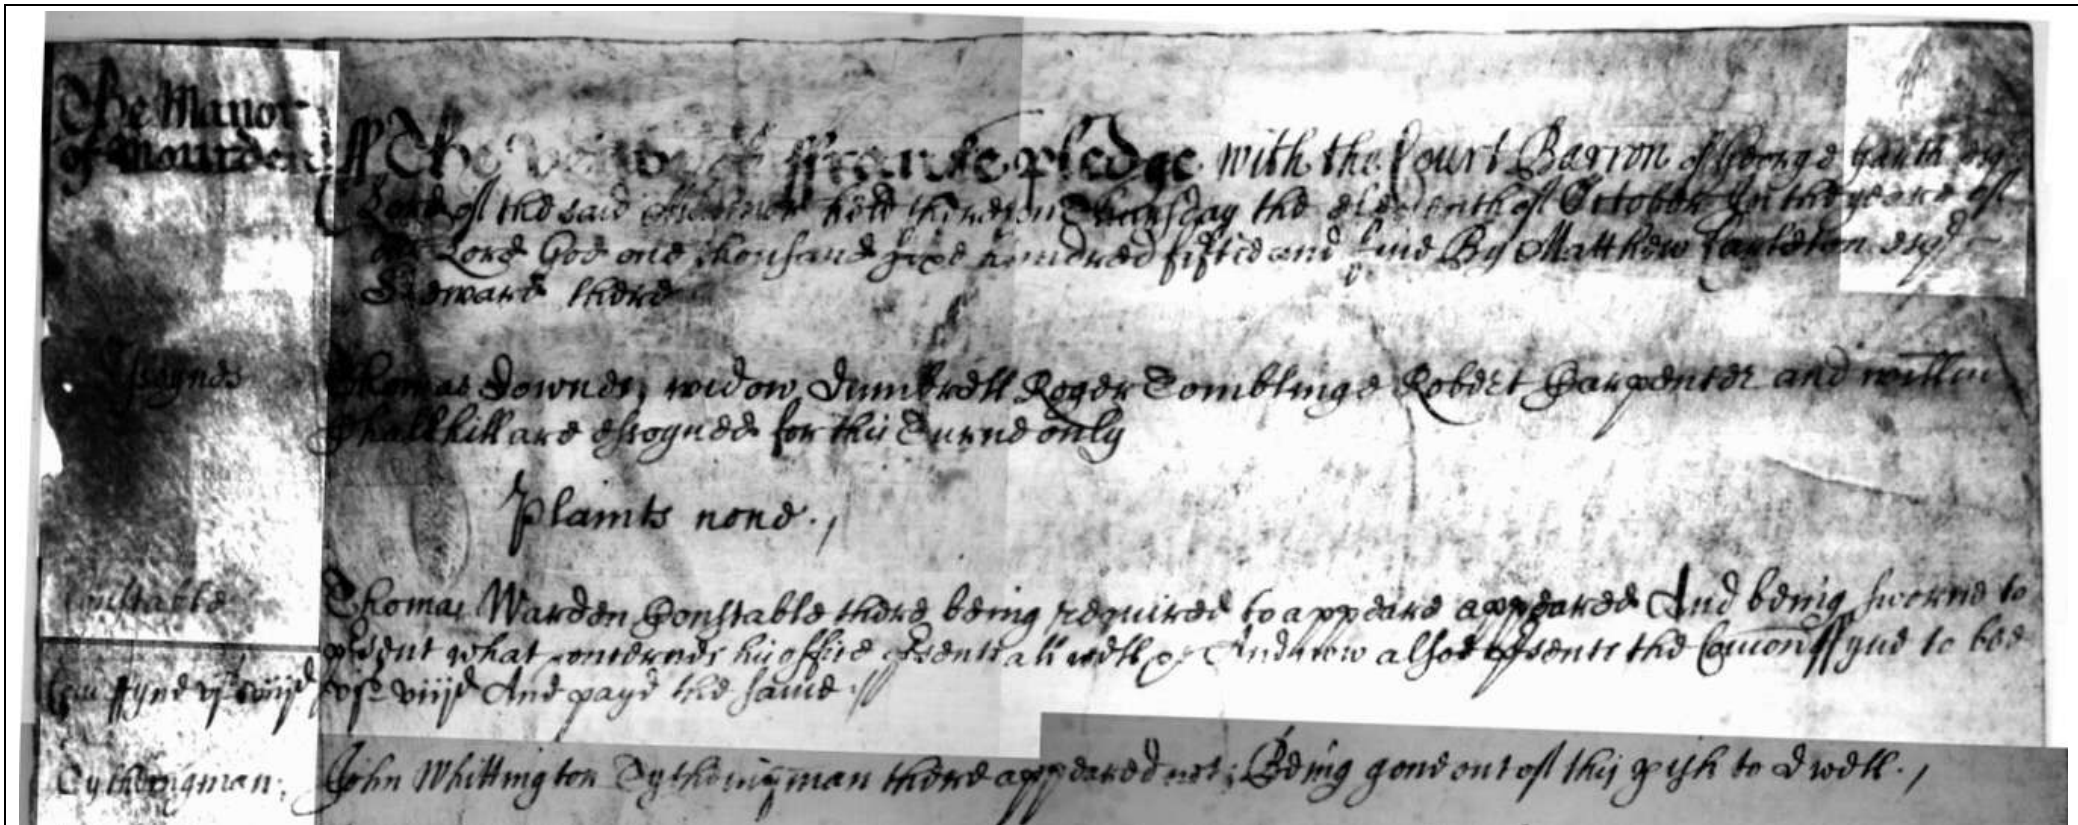 The Manor
of Mourden
ss The View of ffranke pledge with the Court Barron of George Garth esqr
Lord of the said Mannor held there on Thursday the eleaventh of October In the yeare of
our Lord God one thousand sixe hundred fiftie and five By Matthew Carleton esqr
Steward there
Essoynes
Thomas Downes, widow Dumbrell Roger Tomblinge Robert Carpenter and willm
are essoyned for this Turne only
Plaints none.,
Constable
Thomas Warden Constable there being required to appeare appeared And being sworne to
psent what concernes his office psents all well And now alsoe psents the Comon ffyne to bee
Com ffyne vjs viijd
vjs viijd And payd the same
Tythingman.
John Whittington Tythingman there appeared not; Being gone out of this pish to dwell.,